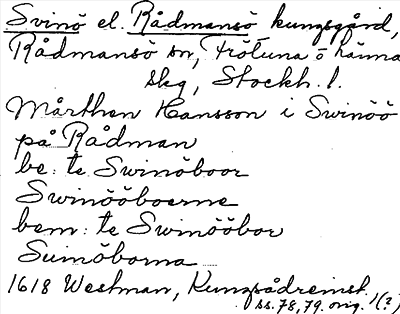 Svinö el. Rådmansö kungsgård,
Rådmansö sn, Frötuna o länna
skg, Stockh. l.
Mårthen Hansson i Swinöö
på Rådman
be: te Swinöboor
Swinööboerne
bem: te Swinööbor
Suinöborna
1618 Westman, Kungsådreinsk
ss. 78, 79. orig. 1(?)